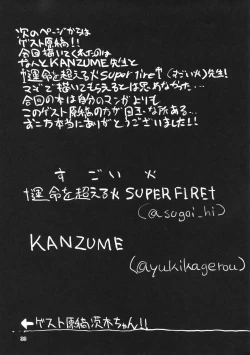 次のページからは
ゲスト原稿!!
今回描いてくれたのは
なんとKANZUME先生と
†運命を超える火super fire†(すごい火)先生!
マジで描いてもらえるとは思わなかった…
今回の本は自分のマンガよりも
このゲスト原稿の方が目玉な所ある…
お二方本当にありがとうございました!!
すごい火
†運命を超える火 SUPER FIRE†
(@sugoi_hi)
KANZUME
(@yukikagerou)
←ゲスト原稿茨木ちゃん!!